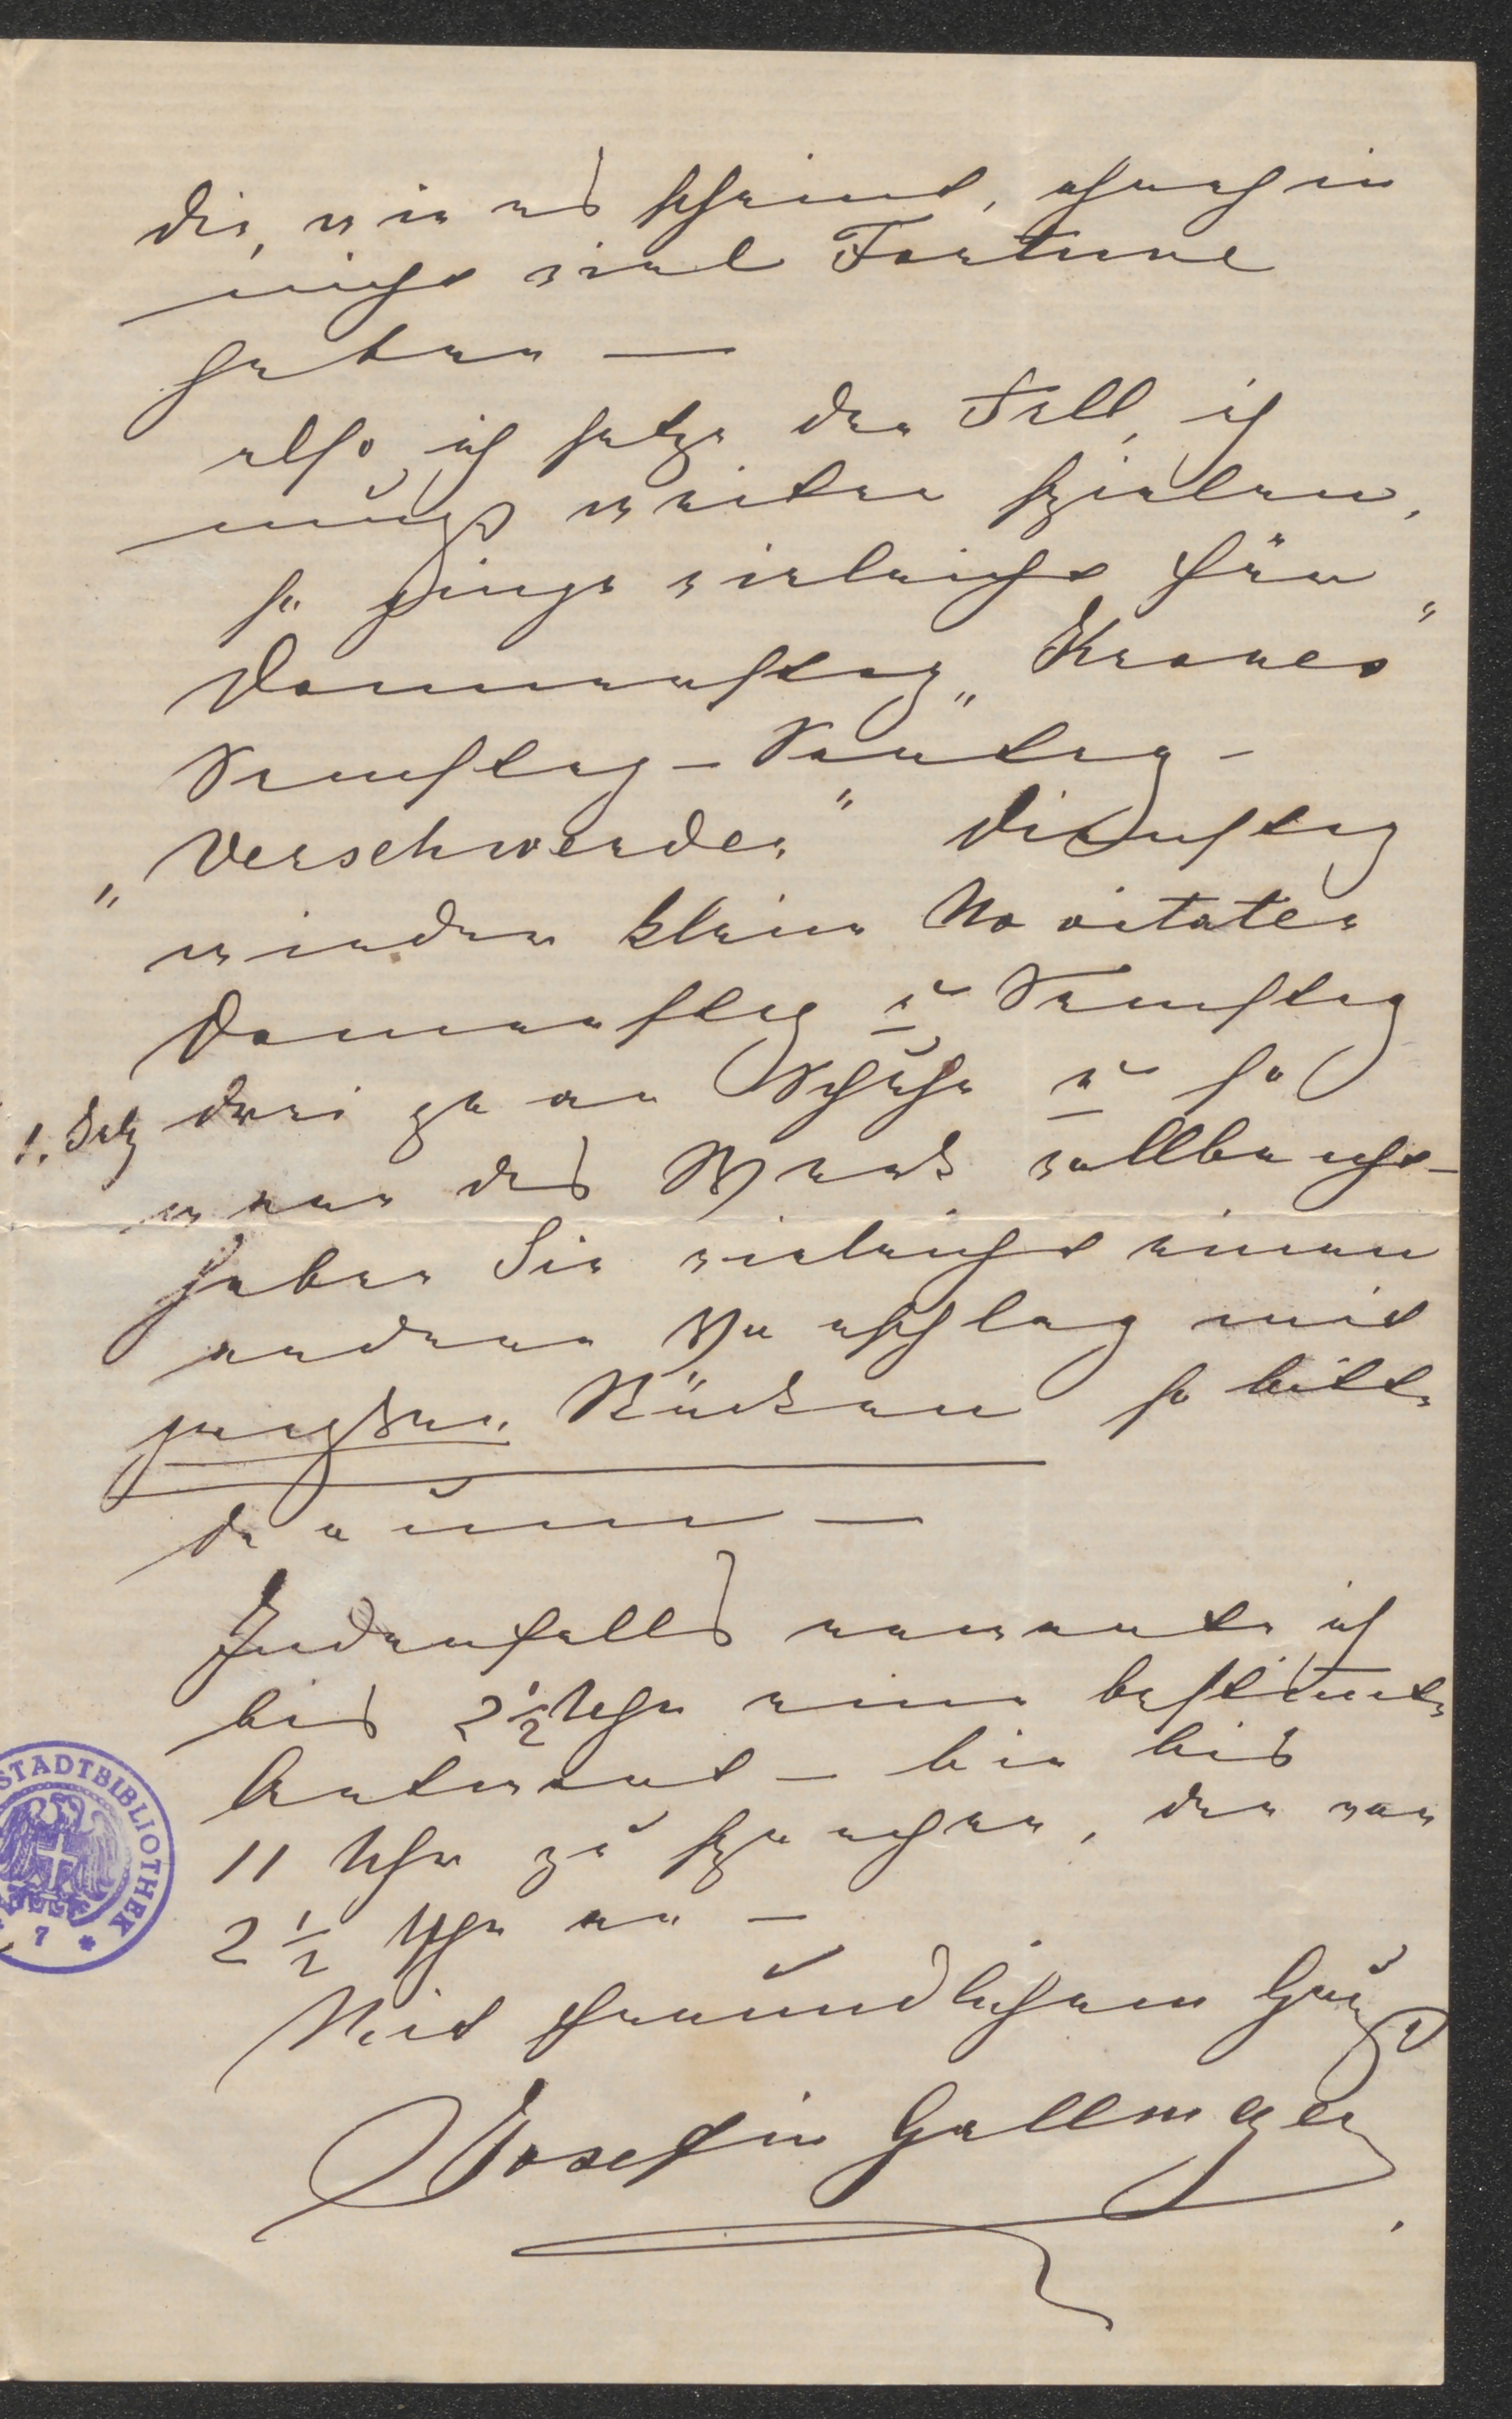 die, wie es scheint, ohnehin
nicht viel Fortune
haben —
also, ich setze den Fall, ich
müßt weiter spielen,
so ginge vieleicht für
Donnerstag „Krones"
Samstag – Sontag –
„Verschwender" Dienstag
wieder kleine Novitäten
Donnerstag u Samstag
drei paar Schuhe u so
wäre das Werk vollbracht –
haben Sie vieleicht einen
andern Vorschlag mit
großen Stücken so bitte
darum —
Jedenfalls erwarte ich
bis 2½ Uhr eine bestimte
Antwort – bin bis
11 Uhr zu sprechen, dan von
2½ Uhr an –
Mit freundlichem Gruß
Josefin Gallmeyer
STADTBIBLIOTHEK
7